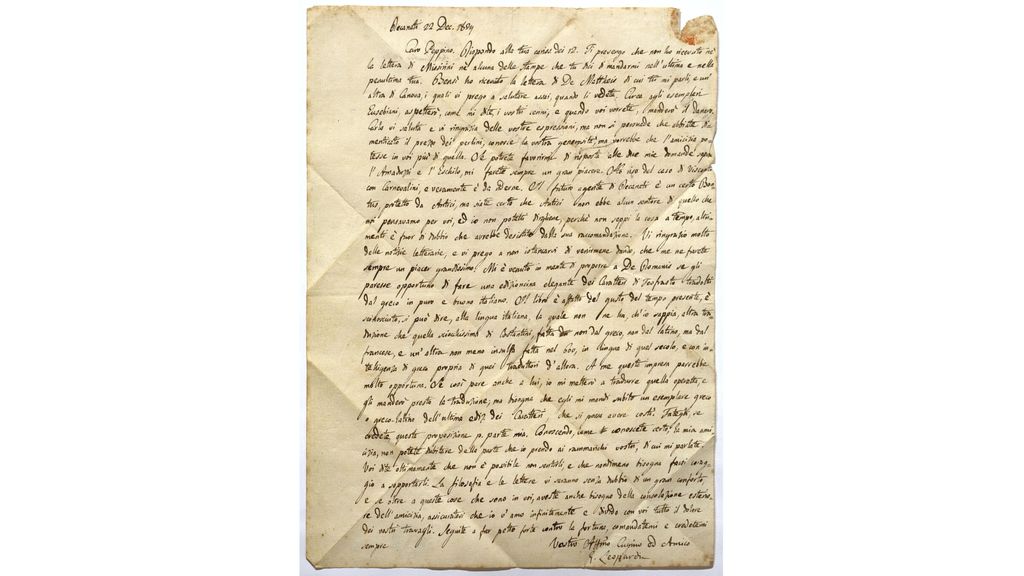 Recanati 22 Dec. 1824
Caro Peppino. Rispondo alla tua carissima dei 12. Ti prevengo che non ho ricevuto nè
la lettera di Missirini nè alcuna delle stampe che tu dici di mandarmi nell'ultima e nella
penultima tua. Bensì ho ricevuto la lettera di De Mattheis di cui tu mi parli, e un'
altra di Canova, i quali vi prego a salutare assai, quando li vedete. Circa agli esemplari
Eusebiani, aspetterò, come mi dite, i vostri cenni, e quando voi vorrete, manderò il danaro.
Carlo vi saluta e vi ringrazia delle vostre espressioni, ma non si persuade che abbiate di-
menticato il prezzo dei pettini, conosce la vostra generosità, ma vorrebbe che l'amicizia po-
tesse in voi più di quella. Se potrete favorirmi di risposta alle due mie domande sopra
l'Amaduzzi e l'Eschilo, mi farete sempre un gran piacere. Ho riso del caso di Visconti
con Carnevalini, e veramente è da riderne. Il futuro agente di Recanati è un certo Bon-
tus, protetto da Antici, ma siate certo che Antici non ebbe alcun sentore di quello che
noi pensavamo per voi, ed io non potetti dirgliene, perchè non seppi la cosa a tempo, altri-
menti è fuor di dubbio che avrebbe desistito dalla sua raccomandazione. Vi ringrazio molto
delle notizie letterarie, e vi prego a non istancarvi di venirmene dando, che me ne farete
sempre un piacer grandissimo. Mi è venuto in mente di proporre a De Romanis se gli
paresse opportuno di fare una edizioncina elegante dei Caratteri di Teofrasto tradotti
dal greco in puro e buono italiano. Il libro è affatto del gusto del tempo presente, è
sconosciuto, si può dire, alla lingua italiana, la quale non ne ha, ch'io sappia, altra tra-
duzione che quella sciocchissima di Costantini, fatta non dal greco, non dal latino, ma dal
francese, e un'altra non meno insulsa fatta nel 600, in lingua di quel secolo, e con in-
telligenza di greco propria di quei traduttori d'allora. A me questa impresa parrebbe
molto opportuna. Se così pare anche a lui, io mi metterei a tradurre quella operetta, e
gli manderei presto la traduzione, ma bisogna che egli mi mandi subito un esemplare greco
o greco-latino dell'ultima ediz. dei Caratteri, che si possa avere costì. Fategli, se
credete questa proposizione p. parte mia. Conoscendo, come tu conoscete certo, la mia ami-
cizia, non potete dubitare della parte che io prendo ai rammarichi vostri, di cui mi parlate.
Voi dite ottimamente che non è possibile non sentirli, e che nondimeno bisogna farsi corag-
gio a sopportarli. La filosofia e le lettere vi saranno senza dubbio di un gran conforto,
e se oltre a queste cose che sono in voi, aveste anche bisogno della consolazione esterio-
re dell'amicizia, assicuratevi che io v'amo infinitamente e divido con voi tutto il dolore
dei vostri travagli. Seguite a far petto forte contro la fortuna, comandatemi e credetemi
sempre
Vostro Affmo Cugino ed Amico
G. Leopardi